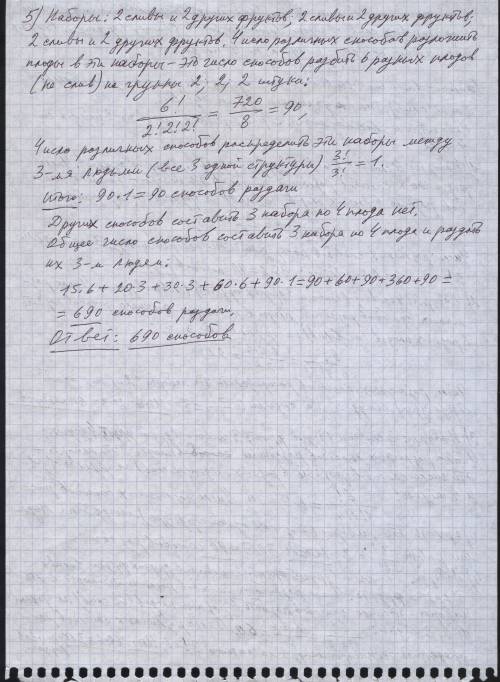 5) Наборы: 2 сливы и 2 других фруктов; 2 сливы и 2 других фруктов;
2 сливы и 2 других фруктов. Число различных способов разложить
плоды в эти наборы – это число способов разбить 6 разных плодов
(не слив) на группы 2, 2, 2 штуки:
6! / 2!2!2! = 720 / 8 = 90,
Число различных способов распределить эти наборы между
3-мя людьми (все 3 одной структуры) 3!/3! = 1.
Итого: 90·1=90 способов раздачи
Других способов составить 3 набора по 4 плода нет.
Общее число способов составить 3 набора по 4 плода и раздать
их 3-м людям:
15·6+20·3+30·3+60·6+90·1=90+60+90+360+90=
= 690 способов раздачи.
Ответ: 690 способов